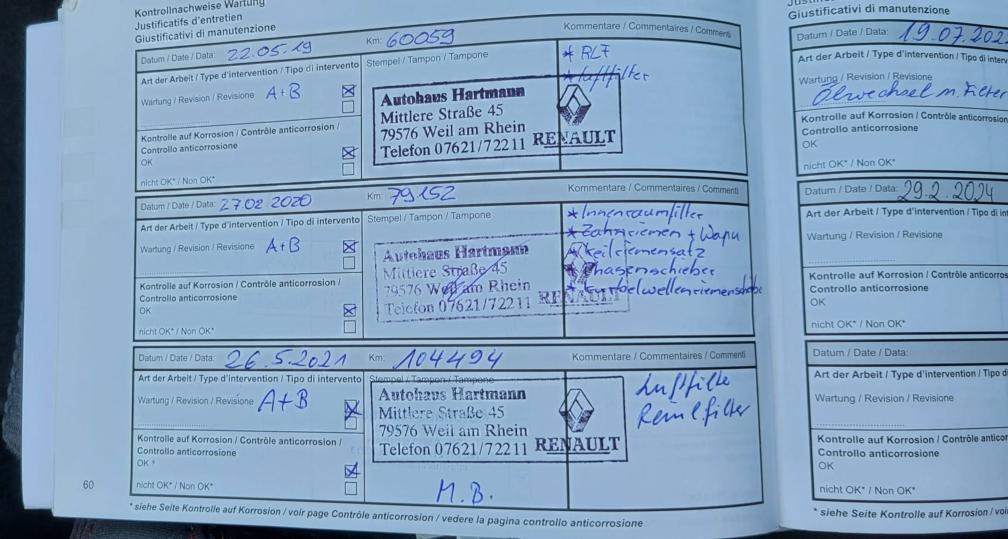 Kontrollnachweise Wartung
Justificatifs d'entretien
Giustificativi di manutenzione
Datum / Date / Data: 22.05.19 Km: 60059 Kommentare / Commentaires / Commenti
Art der Arbeit / Type d'intervention / Tipo di intervento Stempel / Tampon / Tampone
* RLF
Wartung / Revision / Revisione A+B
* Luftfilter
Autohaus Hartmann
Mittlere Straße 45
79576 Weil am Rhein
Telefon 07621/72211 RENAULT
Kontrolle auf Korrosion / Contrôle anticorrosion /
Controllo anticorrosione
OK
nicht OK* / Non OK*
Datum / Date / Data: 27.02.2020 Km: 79152 Kommentare / Commentaires / Commenti
Art der Arbeit / Type d'intervention / Tipo di intervento Stempel / Tampon / Tampone
* Innenraumfilter
Wartung / Revision / Revisione A+B
* Zahnriemen + Wapu
* Keilriemensatz
* Phasenschieber
* Kurbelwellenriemenscheibe
Autohaus Hartmann
Mittlere Straße 45
79576 Weil am Rhein
Telefon 07621/72211 RENAULT
Kontrolle auf Korrosion / Contrôle anticorrosion /
Controllo anticorrosione
OK
nicht OK* / Non OK*
Datum / Date / Data: 26.5.2021 Km: 104494 Kommentare / Commentaires / Commenti
Art der Arbeit / Type d'intervention / Tipo di intervento Stempel / Tampon / Tampone
Wartung / Revision / Revisione A+B
Luftfilter
Autohaus Hartmann
Mittlere Straße 45
79576 Weil am Rhein
Telefon 07621/72211 RENAULT
Kontrolle auf Korrosion / Contrôle anticorrosion /
Controllo anticorrosione
OK *
nicht OK* / Non OK*
M.B.
60
* siehe Seite Kontrolle auf Korrosion / voir page Contrôle anticorrosion / vedere la pagina controllo anticorrosione
Giustificativi di manutenzione
Datum / Date / Data: 19.07.202
Art der Arbeit / Type d'intervention / Tipo di interv
Wartung / Revision / Revisione
Ölwechsel m. Filter
Kontrolle auf Korrosion / Contrôle anticorros
Controllo anticorrosione
OK
nicht OK* / Non OK*
Datum / Date / Data: 29.2.2024
Art der Arbeit / Type d'intervention / Tipo di in
Wartung / Revision / Revisione
Kontrolle auf Korrosion / Contrôle anticorros
Controllo anticorrosione
OK
nicht OK* / Non OK*
Datum / Date / Data:
Art der Arbeit / Type d'intervention / Tipo d
Wartung / Revision / Revisione
Kontrolle auf Korrosion / Contrôle anticor
Controllo anticorrosione
OK
nicht OK* / Non OK*
* siehe Seite Kontrolle auf Korrosion / voi